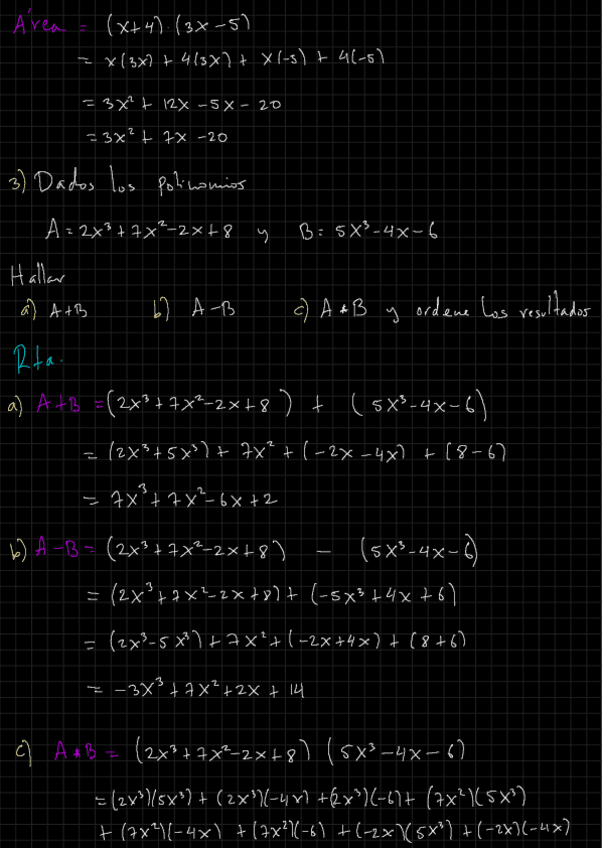 Área = (x+4).(3x-5)
= x(3x) + 4(3x) + x(-5) + 4(-5)
= 3x² + 12x - 5x - 20
= 3x² + 7x - 20
3) Dados los polinomios
A = 2x³ + 7x² - 2x + 8 y B = 5x³ - 4x - 6
Hallar
a) A+B b) A-B c) A*B y ordene los resultados
Rta.
a) A+B = (2x³ + 7x² - 2x + 8) + (5x³ - 4x - 6)
= (2x³ + 5x³) + 7x² + (-2x - 4x) + (8 - 6)
= 7x³ + 7x² - 6x + 2
b) A-B = (2x³ + 7x² - 2x + 8) - (5x³ - 4x - 6)
= (2x³ + 7x² - 2x + 8) + (-5x³ + 4x + 6)
= (2x³ - 5x³) + 7x² + (-2x + 4x) + (8 + 6)
= -3x³ + 7x² + 2x + 14
c) A*B = (2x³ + 7x² - 2x + 8) (5x³ - 4x - 6)
= (2x³)(5x³) + (2x³)(-4x) + (2x³)(-6) + (7x²)(5x³)
+ (7x²)(-4x) + (7x²)(-6) + (-2x)(5x³) + (-2x)(-4x)